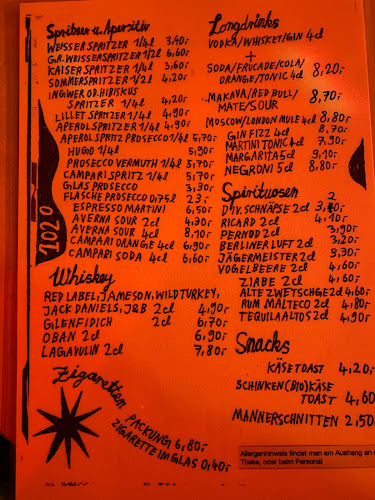 Spritzer u. Aperitiv
WEISSER SPRITZER 1/4l 3,40.-
G.R. WEISSER SPRITZER 1/2l 6,60
KAISER SPRITZER 1/4l 3,60.-
SOMMERSPRITZER 1/2l 4,20.-
INGWER OD. HIBISKUS
SPRITZER 1/4l 4,20.-
LILLET SPRITZER 1/4l 4,90.-
APEROL SPRITZER 1/4l 4,90.-
APEROL SPRITZ PROSECCO 1/4l 5,70.-
HUGO 1/4l 5,90.-
PROSECCO VERMUTH 1/4l 5,70.-
CAMPARI SPRITZ 1/4l 5,70.-
GLAS PROSECCO 3,30.-
FLASCHE PROSECCO 0,75l 23.-
ESPRESSO MARTINI 6,50.-
AVERNA SOUR 2cl 4,30.-
AVERNA SOUR 4cl 8,10.-
CAMPARI ORANGE 4cl 6,90.-
CAMPARI SODA 4cl 6,60.-
Whiskey
RED LABEL, JAMESON, WILD TURKEY,
JACK DANIELS, J&B 2cl 4,90.-
GLENFIDICH 2cl 6,70.-
OBAN 2cl 6,90.-
LAGAVULIN 2cl 7,80.-
Zigaretten
PACKUNG 6,80.-
ZIGARETTE IM GLAS 0,40.-
Longdrinks
VODKA/WHISKEY/GIN 4cl
+
SODA/FRUCADE/COLA/
ORANGE/TONIC 4cl 8,20.-
MAKAVA/RED BULL/
MATE/SOUR 8,70.-
MOSCOW/LONDON MULE 4cl 8,80.-
GIN FIZZ 4cl 8,70.-
MARTINI TONIC 4cl 7,90.-
MARGARITA 5cl 9,10.-
NEGRONI 5cl 8,80.-
Spirituosen
DIV. SCHNÄPSE 2cl
RICARD 2cl 4,10.-
PERNOD 2cl 3,90.-
BERLINER LUFT 2cl 3,20.-
JÄGERMEISTER 2cl 3,30.-
VOGELBEERE 2cl 4,60.-
ZIRBE 2cl 4,60.-
ALTE ZWETSCHGE 2cl 4,60.-
RUM MALTECO 2cl 4,80.-
TEQUILA ALTOS 2cl 4,90.-
Snacks
KÄSETOAST 4,20.-
SCHINKEN (BIO) KÄSE
TOAST 4,60
MANNERSCHNITTEN 2,50.
Allergenhinweis findet man am Aushang an
Theke, oder beim Personal